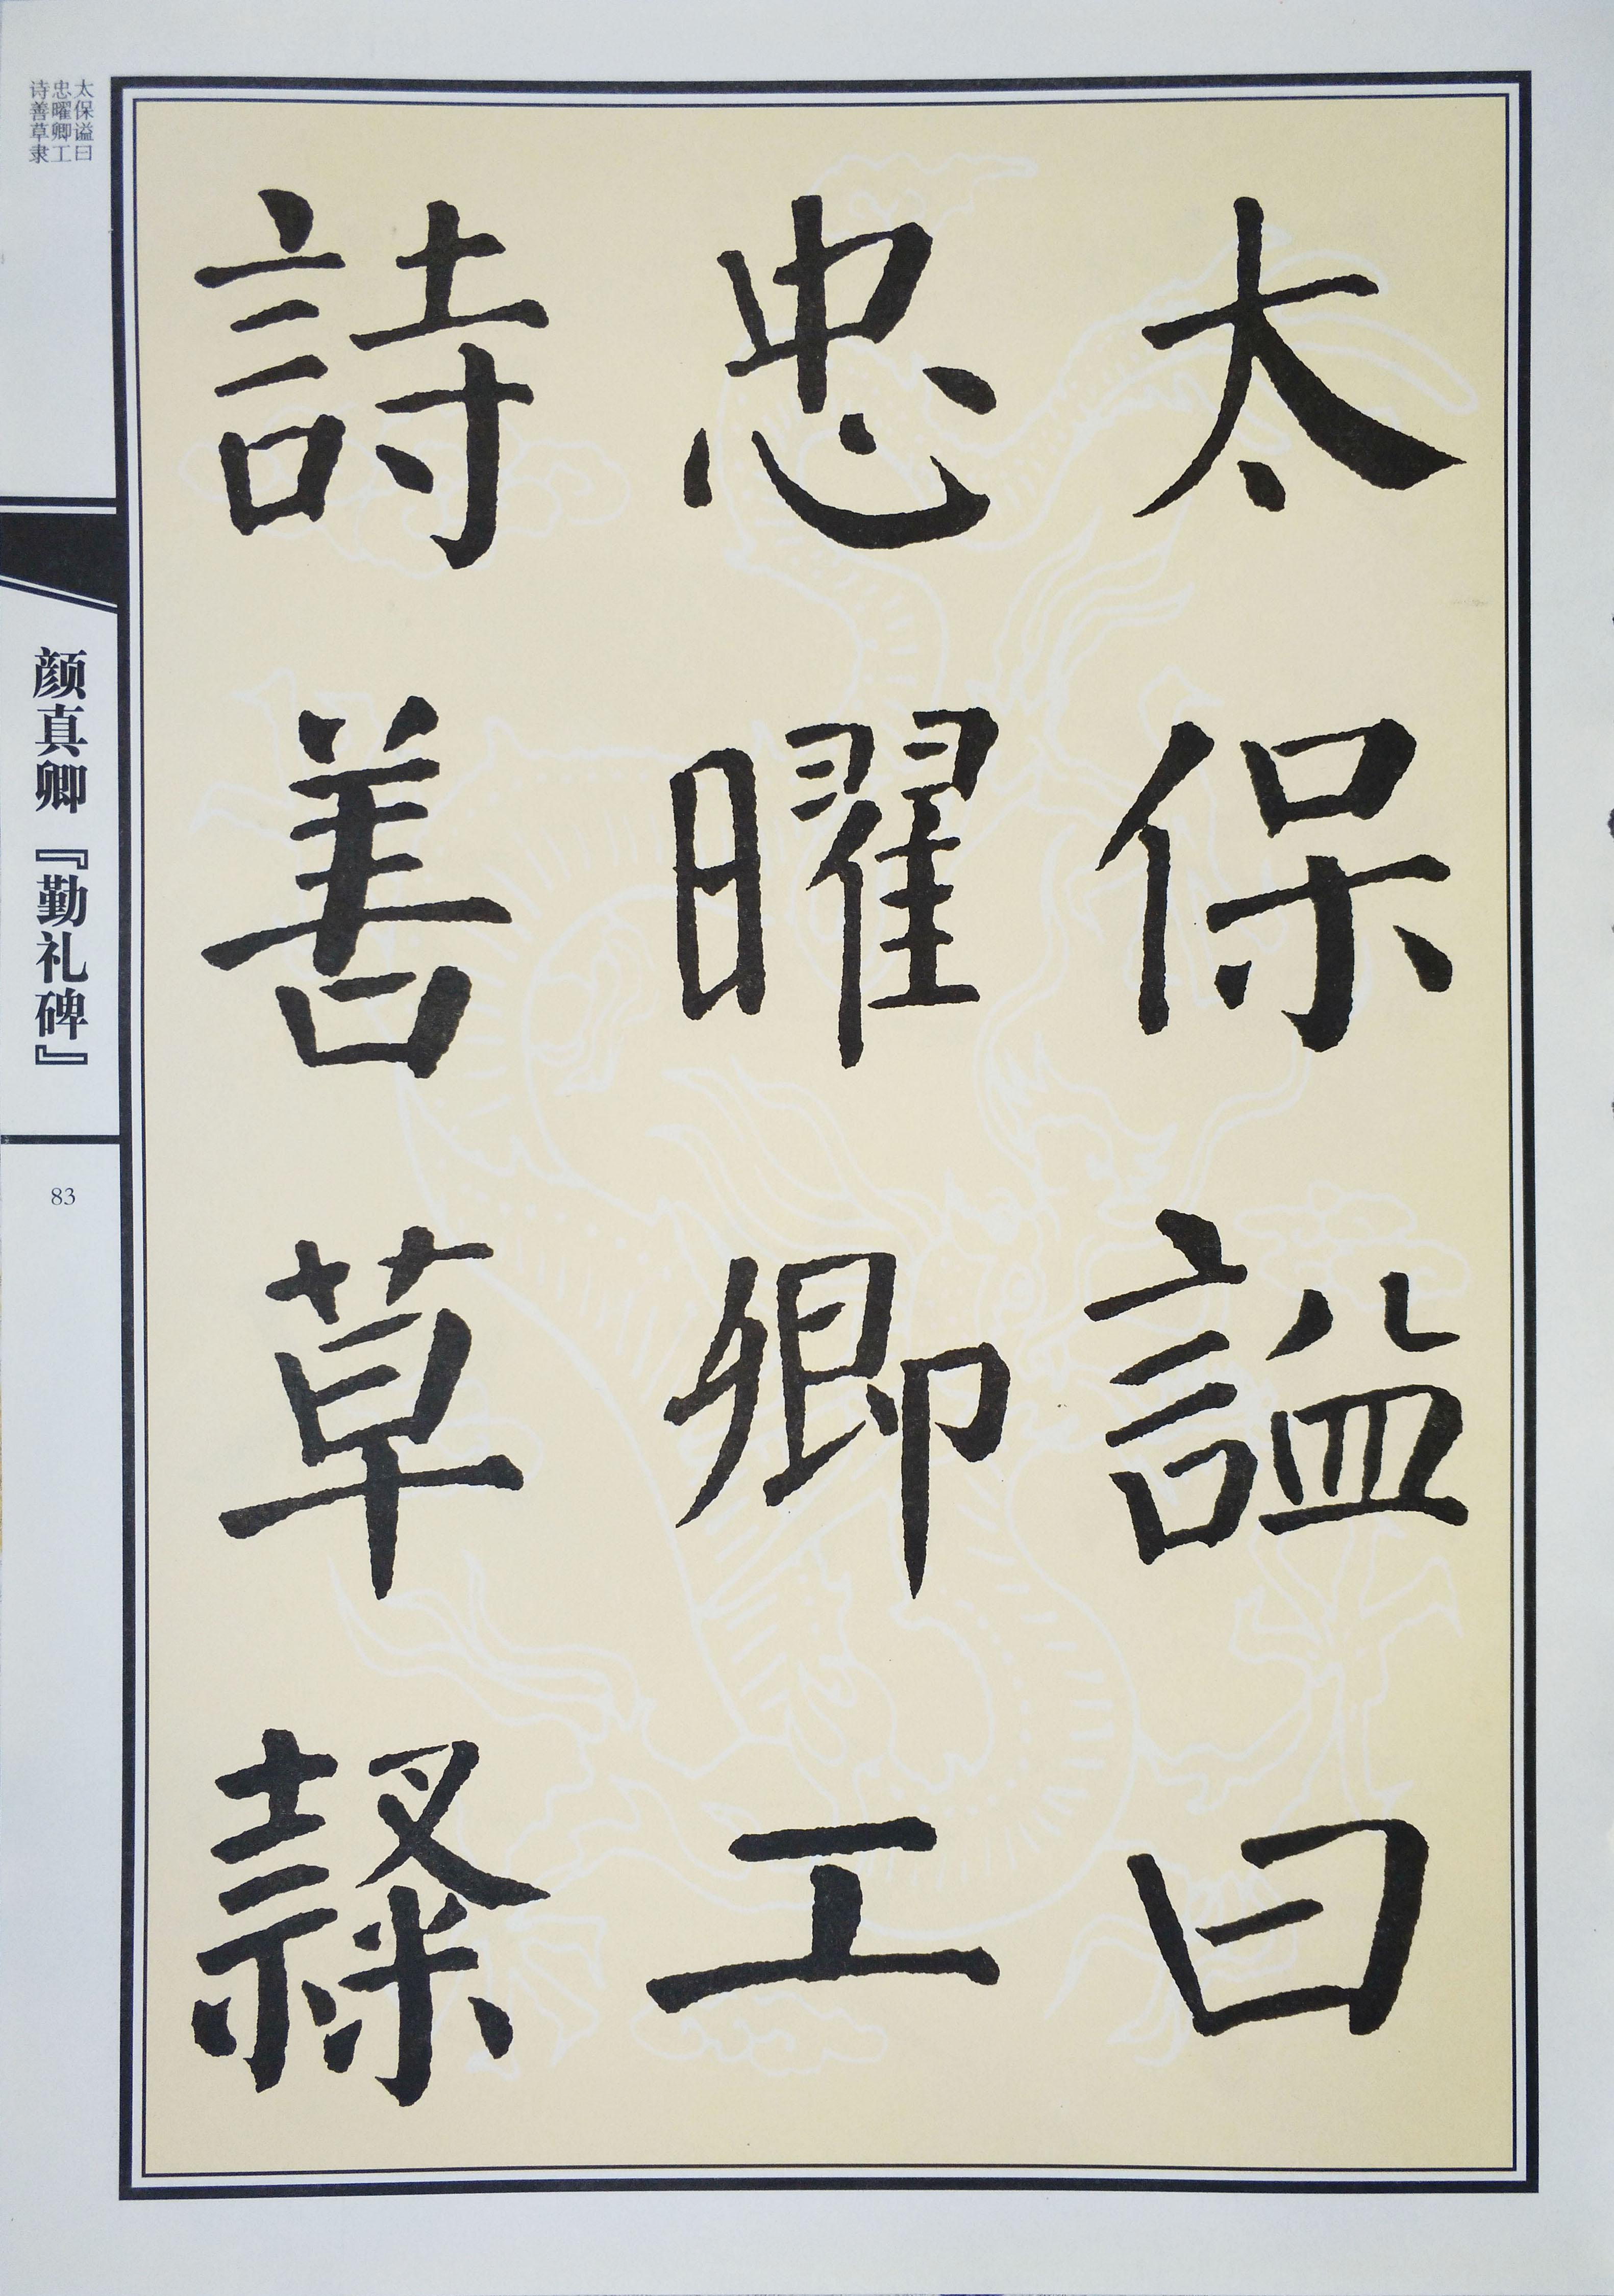 太保謚曰
忠曜卿工
詩善草隸
太保谥曰
忠曜卿工
诗善草隶
颜真卿『勤礼碑』
83